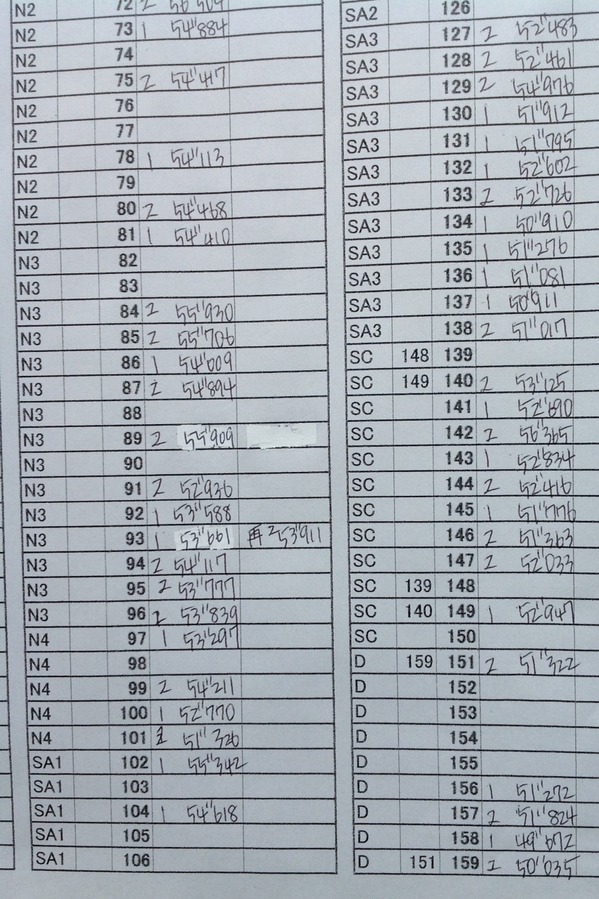 N2 72 2
N2 73 1 54"884
N2 74
N2 75 2 54"417
N2 76
N2 77
N2 78 1 54"113
N2 79
N2 80 2 54"468
N2 81 1 54"410
N3 82
N3 83
N3 84 2 55"930
N3 85 2 55"706
N3 86 1 54"609
N3 87 2 54"894
N3 88
N3 89 2 55"909
N3 90
N3 91 2 52"936
N3 92 1 53"588
N3 93 1 53"661 再 2 53"911
N3 94 2 54"117
N3 95 2 53"777
N3 96 2 53"839
N4 97 1 53"297
N4 98
N4 99 2 54"211
N4 100 1 52"770
N4 101 51"326
SA1 102 1 55"342
SA1 103
SA1 104 1 54"618
SA1 105
SA1 106
SA2 126
SA3 127 2 52"483
SA3 128 2 52"461
SA3 129 2 54"976
SA3 130 1 51"912
SA3 131 1 51"795
SA3 132 1 52"602
SA3 133 2 52"726
SA3 134 1 50"910
SA3 135 1 51"276
SA3 136 1 51"081
SA3 137 1 50"911
SA3 138 2 51"017
SC 148 139
SC 149 140 2 53"125
SC 141 1 52"690
SC 142 2 56"365
SC 143 1 52"834
SC 144 2 52"416
SC 145 1 51"776
SC 146 2 51"363
SC 147 2 52"033
SC 139 148
SC 140 149 1 52"947
SC 150
D 159 151 2 51"322
D 152
D 153
D 154
D 155
D 156 1 51"272
D 157 2 51"824
D 158 1 49"672
D 151 159 2 50"035